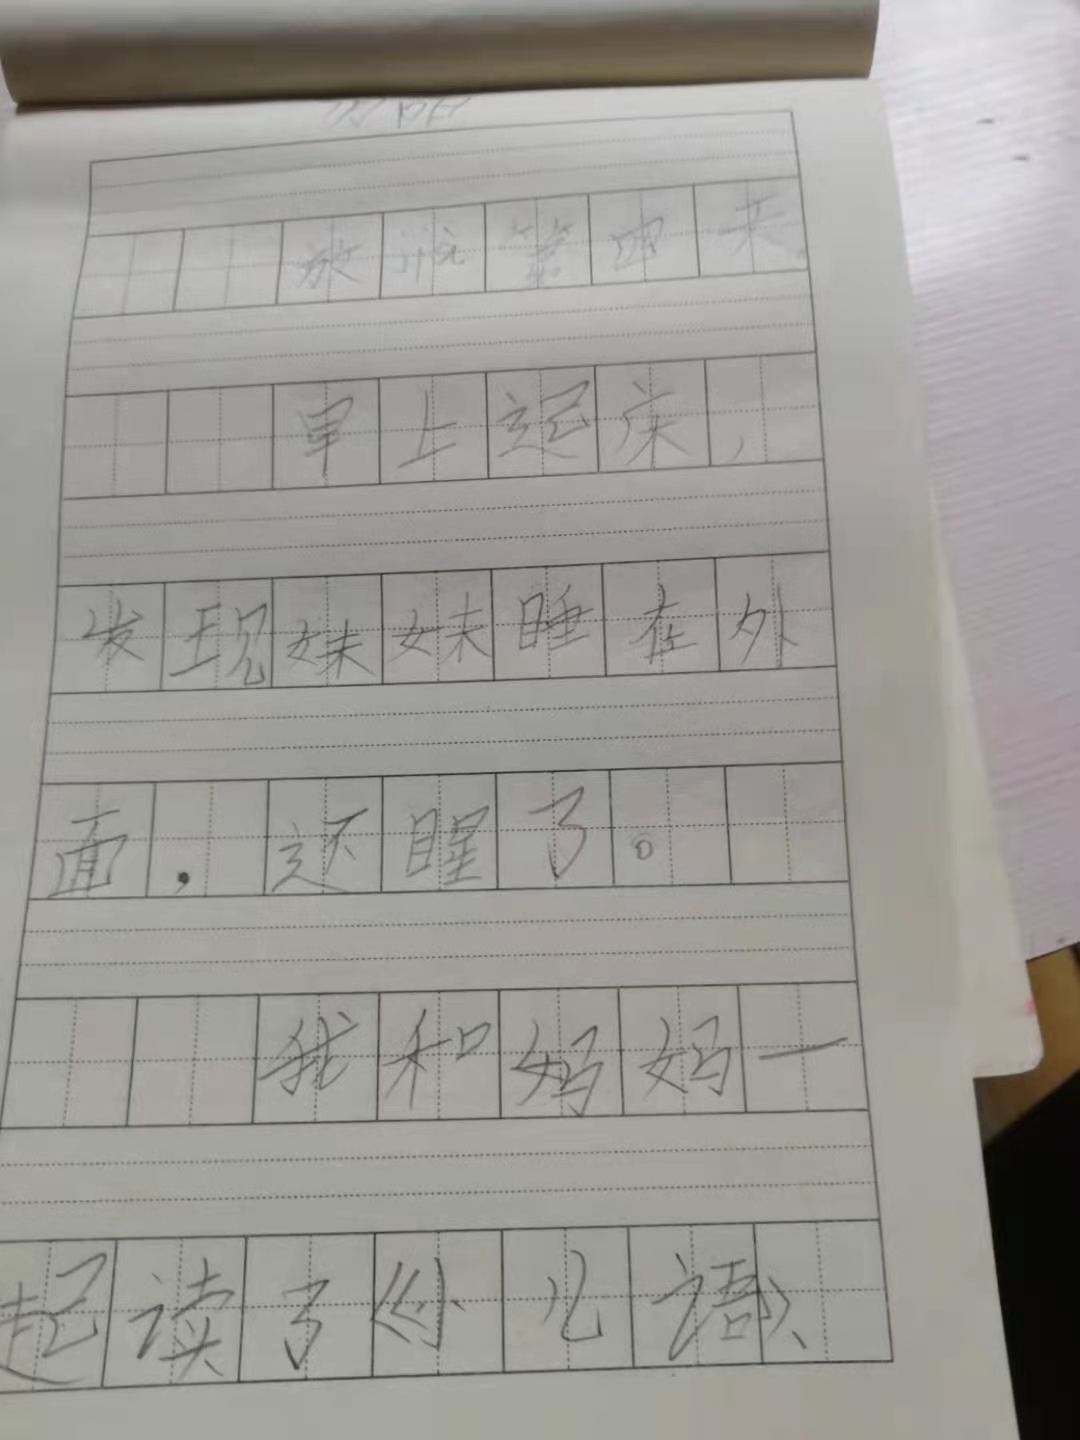 放 第四天
早上起床，
发现妹妹睡在外
面，还醒了。
我和妈妈一
起读了《小儿语》、